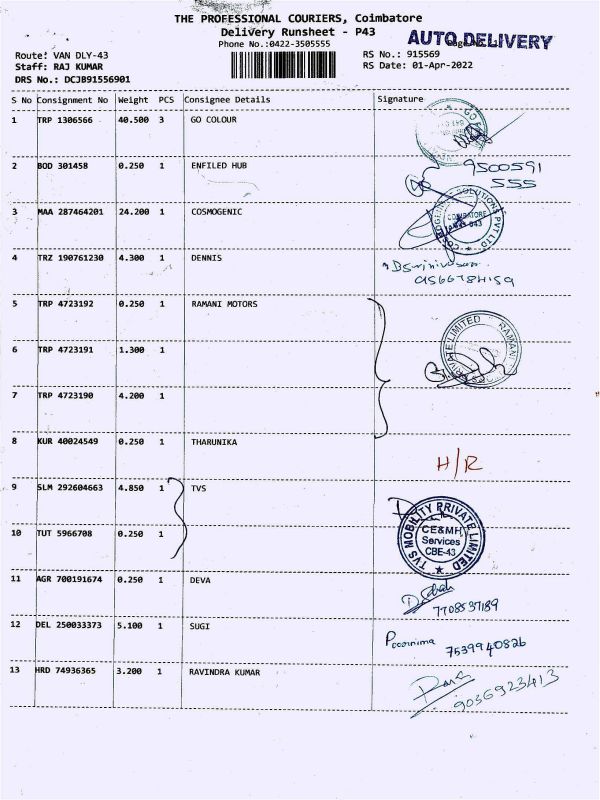 THE PROFESSIONAL COURIERS, Coimbatore
Delivery Runsheet - P43
Phone No.:0422-3505555
AUTO DELIVERY
Route: VAN DLY-43
RS No.: 915569
Staff: RAJ KUMAR
RS Date: 01-Apr-2022
DRS No.: DCJB91556901
S No Consignment No Weight PCS Consignee Details Signature
1 TRP 1306566 40.500 3 GO COLOUR
2 BOD 301458 0.250 1 ENFILED HUB 9500591
555
3 MAA 287464201 24.200 1 COSMOGENIC
COIMBATORE
4 TRZ 190761230 4.300 1 DENNIS
5 TRP 4723192 0.250 1 RAMANI MOTORS
PRIVATE LIMITED RAMANI
6 TRP 4723191 1.300 1
7 TRP 4723190 4.200 1
8 KUR 40024549 0.250 1 THARUNIKA
H/R
9 SLM 292604663 4.850 1 TVS
TVS MOBILITY PRIVATE LIMITED
CE&MH
Services
CBE-43
10 TUT 5966708 0.250 1
11 AGR 700191674 0.250 1 DEVA
7708537189
12 DEL 250033373 5.100 1 SUGI
Poornima
7539940826
13 HRD 74936365 3.200 1 RAVINDRA KUMAR
9036923413